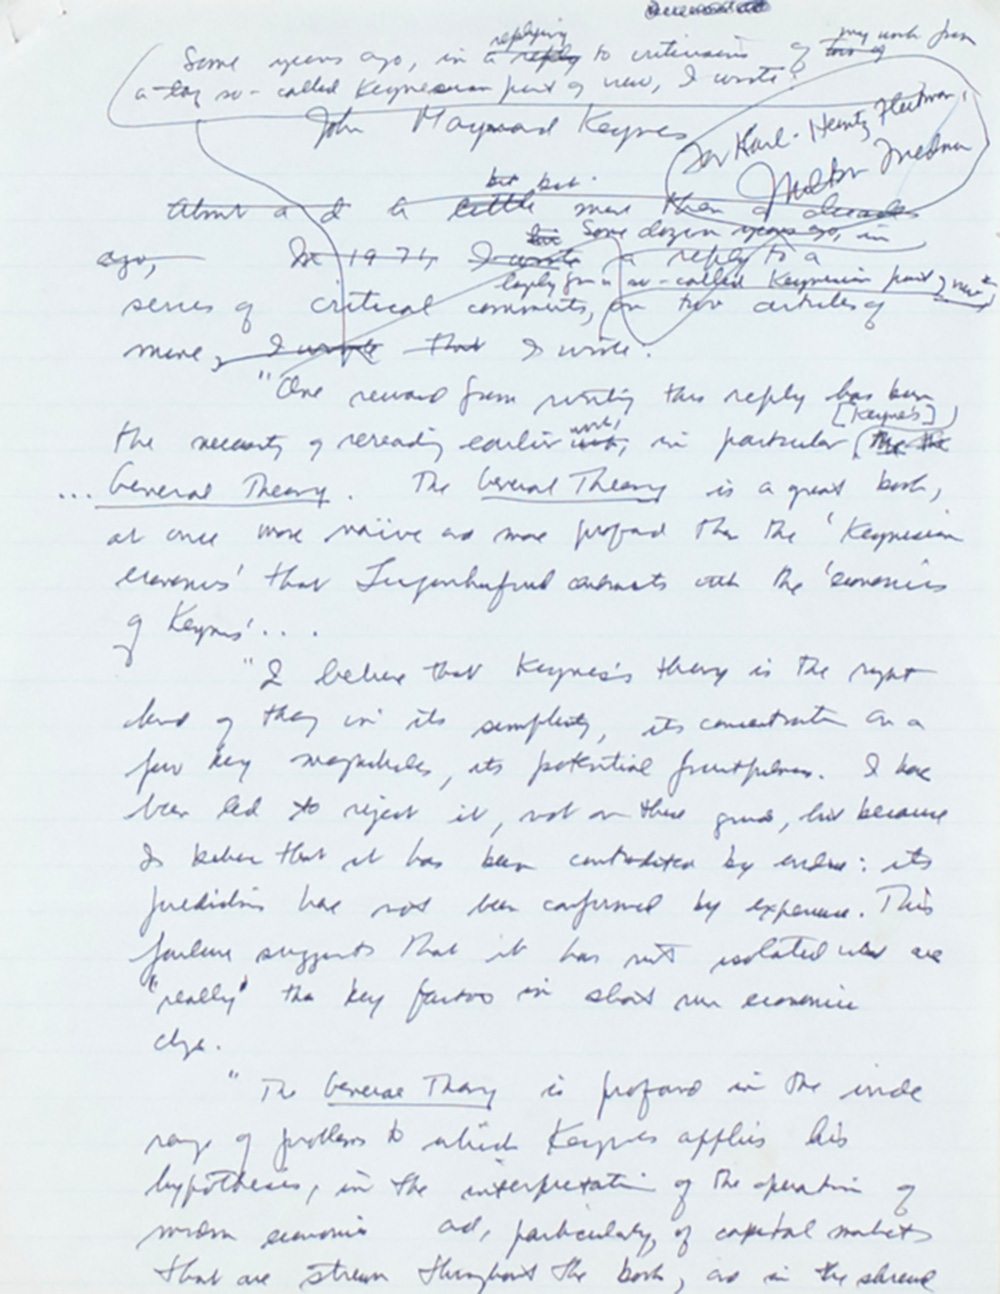 Some years ago, in a reply replying to criticism of this of my work from
a so-called Keynesian point of view, I wrote:
John Maynard Keynes
for Karl-Heintz
Milton Friedman
About a little more than a decade
but
Some dozen years ago, in
ago, In 1974 I wrote a reply to a
largely from a so-called Keynesian point of view
series of critical comments, on two articles of
mine, I wrote that I wrote.
"One reward from writing this reply has been
[Keynes's]
the necessity of rereading earlier work, in particular the
... General Theory. The General Theory is a great book,
at once more naïve and more profound than the 'Keynesian
economics' that Leijonhufvud contrasts with the 'economics
of Keynes'....
"I believe that Keynes's theory is the right
kind of theory in its simplicity, its concentration on a
few key magnitudes, its potential fruitfulness. I have
been led to reject it, not on these grounds, but because
I believe that it has been contradicted by evidence: its
predictions have not been confirmed by experience. This
failure suggests that it has not isolated what are
"really" the key factors in short run economic
change.
"The General Theory is profound in the wide
range of problems to which Keynes applies his
hypothesis, in the interpretation of the operation of
modern economies and, particularly, of capital markets
that are strewn throughout the book, and in the shrewd